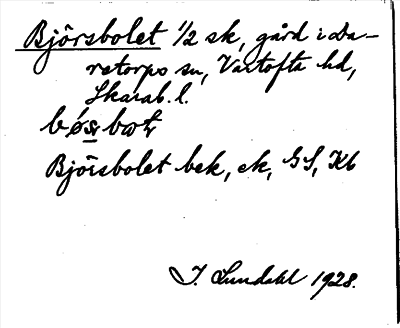 Björsbolet 1/2 sk, gård i Da-
retorps sn, Vartofta hd,
Skarab. l.
Björsbolet bek, ek, GS, Kb
I. Lundahl 1928.